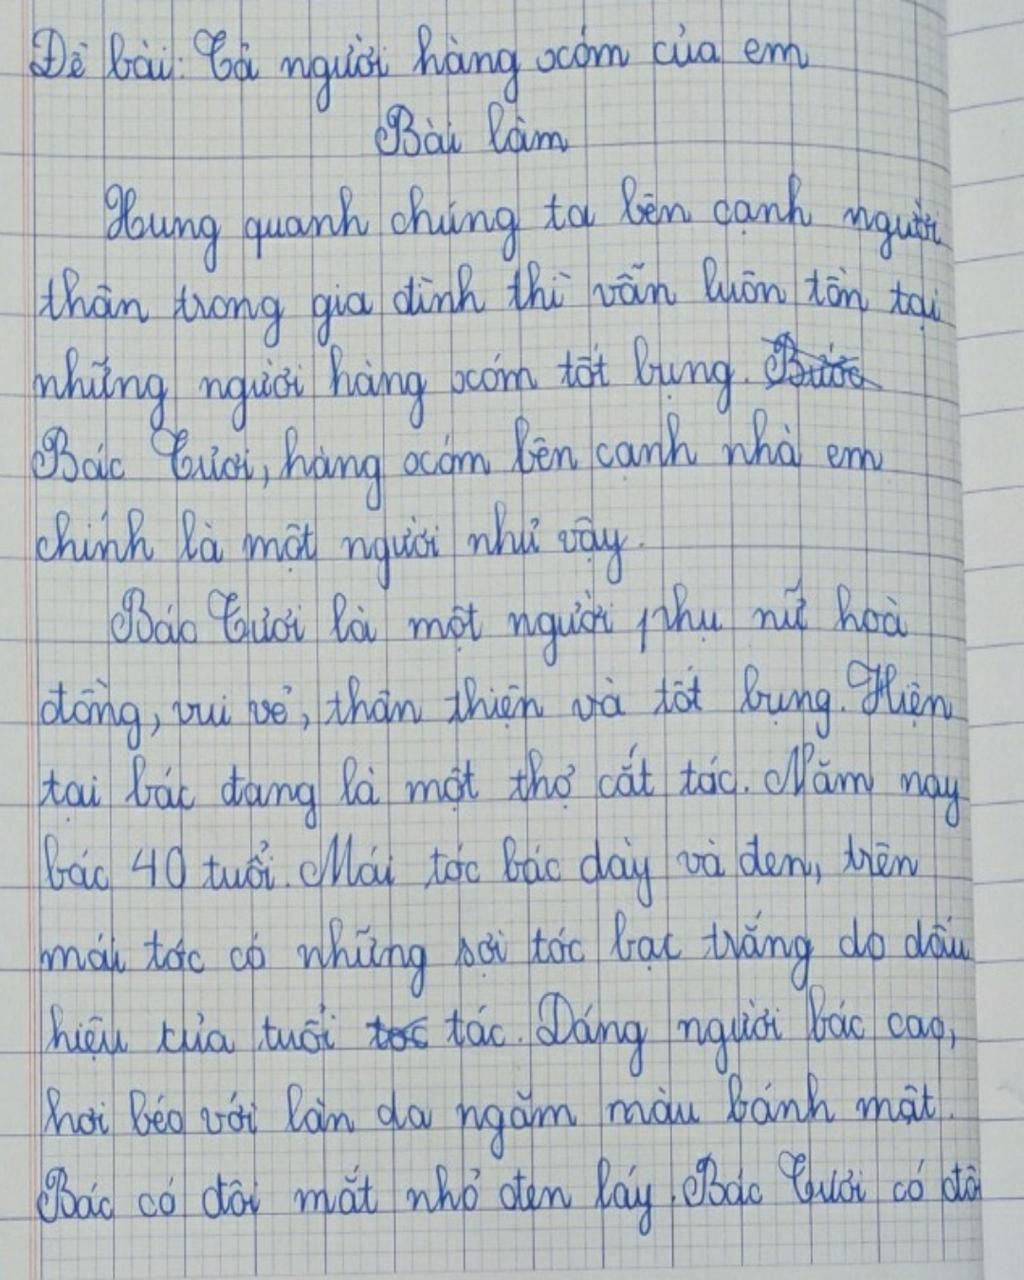 Đề bài: Tả người hàng xóm của em
Bài làm
Xung quanh chúng ta bên cạnh người
thân trong gia đình thì vẫn luôn tồn tại
những người hàng xóm tốt bụng.
Bác Tươi, hàng xóm bên cạnh nhà em
chính là một người như vậy.
Bác Tươi là một người phụ nữ hoà
đồng, vui vẻ, thân thiện và tốt bụng. Hiện
tại bác đang là một thợ cắt tóc. Năm nay
bác 40 tuổi. Mái tóc bác dày và đen, trên
mái tóc có những sợi tóc bạc trắng do dấu
hiệu của tuổi tác. Dáng người bác cao,
hơi béo với làn da ngăm màu bánh mật.
Bác có đôi mắt nhỏ đen láy. Bác Tươi có đô